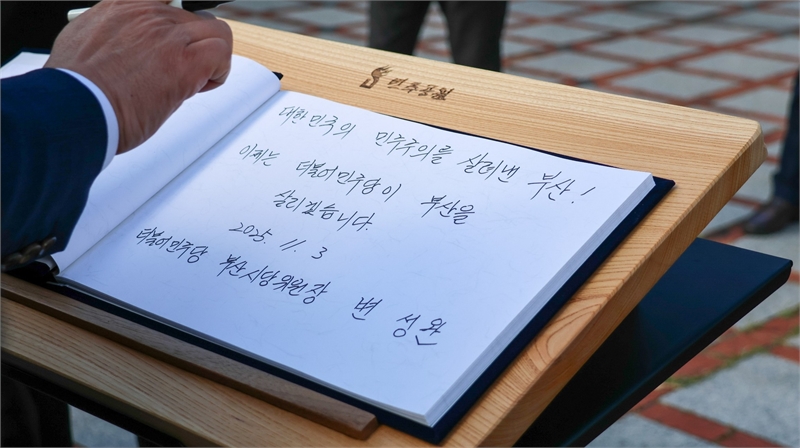 민주공원
대한민국의 민주주의를 살려낸 부산!
이제는 더불어민주당이 부산을
살리겠습니다.
2025. 11. 3
더불어민주당 부산시당위원장 변성완